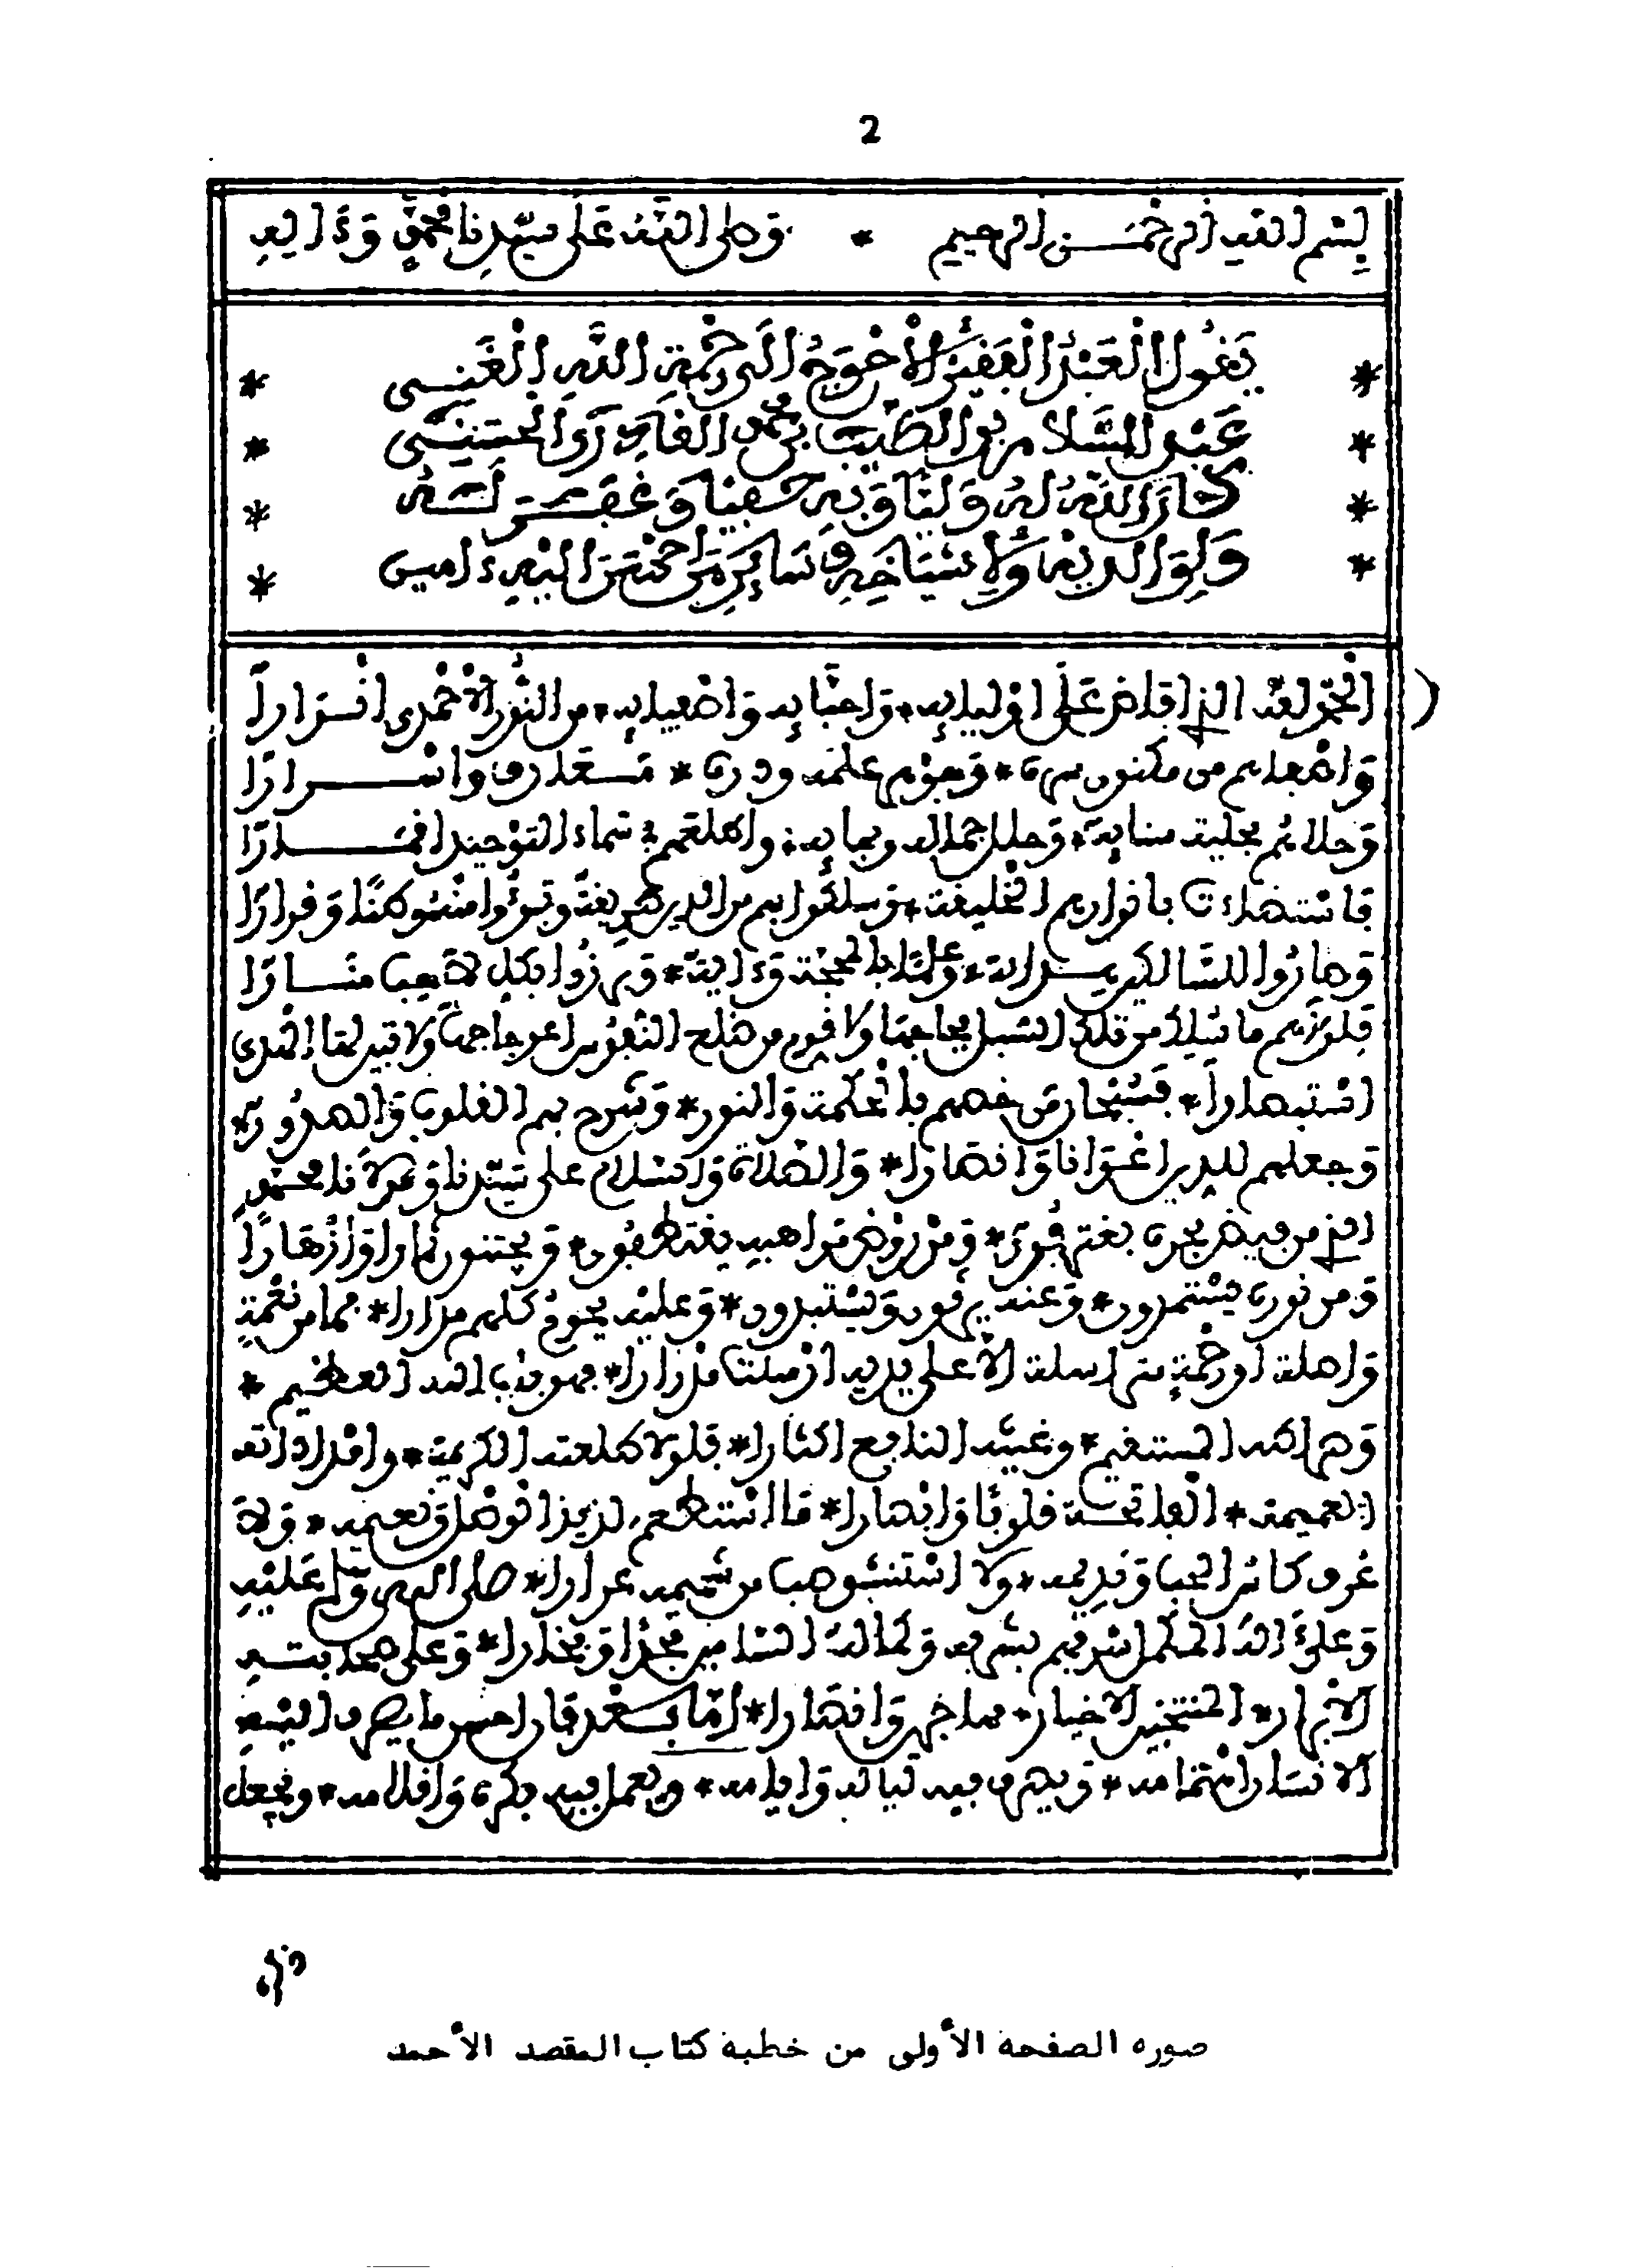 2
بسم الله الرحمن الرحيم * وصلى الله على سيدنا محمد وءاله
* يقول العبد الفقير الأحوج الى رحمة الله الغني *
* عبد السلام بن الطيب بن محمد القادري الحسني *
* كان الله له وليا وبه حفيا وغفر له *
* ولوالديه ولأشياخه وسائر من أحسن اليه ءامين *
الحمد لله الذي أفاض على أوليائه * وأحبائه وأصفيائه * من النور الأحمدي أنوارا
وأنجلهم من مكنون سره * وفيوض علمه ودره * معارف وأسرارا
وحلاهم بحلية سنائه * وحلل جماله وبهائه * وأطلعهم في سماء التوحيد أقمارا
فاستضاءت بأنوارهم الخليقة * وسلكوا بهم من الدين طريقة وتبوءوا منه وكنا وقرارا
وصاروا للسالكين دراية * وعلما بالمحجة وءاية * وبرزوا بكل لاحب منارا
فلولاهم ما سلك من تلك السبل فجاجها ولا قوم من ضلع النفوس اعوجاجها ولا قيد لها الهدى
استبصارا * فسبحان من خصهم بالحكمة والنور * وشرح بهم القلوب والصدور *
وجعلهم للدين أعوانا وأنصارا * والصلاة والسلام على سيدنا ومولانا محمد
الذي من فيض بحره يغترفون * ومن روض مواهبه يقتطفون * ويجتنون ثمارا وأزهارا
ومن نوره يستمدون * وعنده يقفون ويستبدون * وعليه يحوم كلهم مدارا * فما من نعمة
واصلة أو رحمة مرسلة الا على يديه أرسلت مدرارا * فهو باب الله العظيم *
وصراطه المستقيم * وغيثه النافع اكثارا * فلولا طلعته الكريمة * وامداداته
العميمة * الفاتحة قلوبا وأبصارا * ما استطعم لذيذ الوصل ونعيمه * ولا
عرف كأس الحب وقديمه * ولا استنشق صب من شميمه عرارا * صلى الله وسلم عليه
وعلى ءاله المكمل شرفهم بشرفه وكماله السامين مجدا وفخارا * وعلى صحابته
الأبرار * المنتخبين الأخيار * مهاجرين وأنصارا * أما بعد فان أحسن ما يصرف اليه
الانسان اهتمامه * ويصرف فيه لياليه وأيامه * ويعمل فيه فكره وأقلامه * ويجعل
صوره الصفحة الأولى من خطبة كتاب المقصد الأحمد